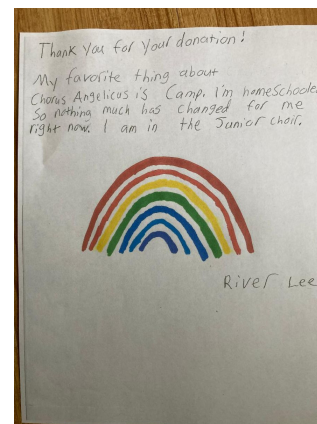 Thank you for your donation!
My favorite thing about
Chorus Angelicus is Camp. I'm homeschooled
So nothing much has changed for me
right now. I am in the Junior choir.
River Lee